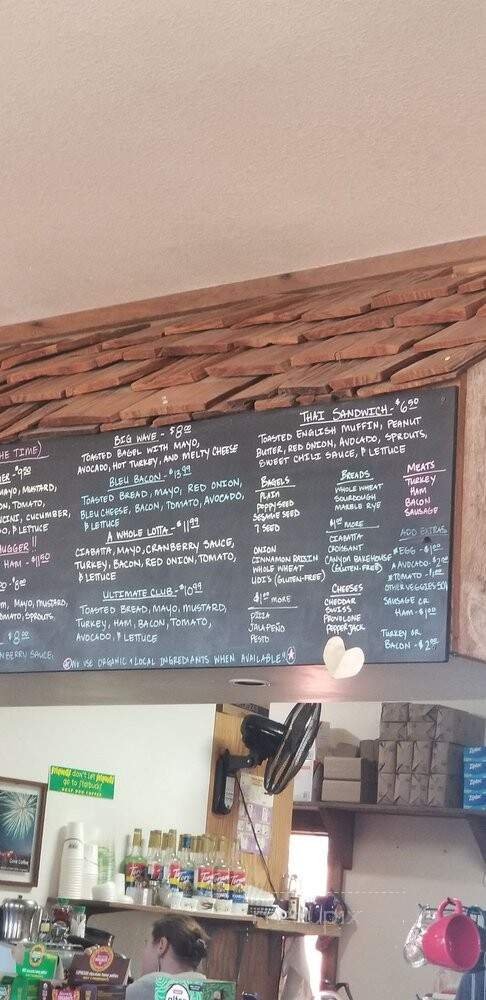 HE TIME)
ER - $9.00
MAYO, MUSTARD,
TOMATO,
CUCUMBER,
& LETTUCE
HUGGER!!
HAM - $11.50
- $8.00
MAYO, MUSTARD,
TOMATO, SPROUTS,
$8.00
NBERRY SAUCE,
BIG WAVE - $8.00
TOASTED BAGEL WITH MAYO,
AVOCADO, HOT TURKEY, AND MELTY CHEESE
BLEU BACON - $13.99
TOASTED BREAD, MAYO, RED ONION,
BLEU CHEESE, BACON, TOMATO, AVOCADO,
& LETTUCE
A WHOLE LOTTA - $11.99
CIABATTA, MAYO, CRANBERRY SAUCE,
TURKEY, BACON, RED ONION, TOMATO,
& LETTUCE
ULTIMATE CLUB - $10.99
TOASTED BREAD, MAYO, MUSTARD,
TURKEY, HAM, BACON, TOMATO,
AVOCADO, & LETTUCE
WE USE ORGANIC & LOCAL INGREDIANTS WHEN AVAILABLE!!
THAI SANDWICH - $6.50
TOASTED ENGLISH MUFFIN, PEANUT
BUTTER, RED ONION, AVOCADO, SPROUTS,
SWEET CHILI SAUCE, & LETTUCE
BAGELS
PLAIN
POPPY SEED
SESAME SEED
7 SEED
ONION
CINNAMON RAISIN
WHOLE WHEAT
UDI'S (GLUTEN-FREE)
$1.00 MORE
PIZZA
JALAPEÑO
PESTO
BREADS
WHOLE WHEAT
SOURDOUGH
MARBLE RYE
$1.00 MORE
CIABATTA
CROISSANT
CANYON BAKEHOUSE
(GLUTEN-FREE)
CHEESES
CHEDDAR
SWISS
PROVOLONE
PEPPERJACK
MEATS
TURKEY
HAM
BACON
SAUSAGE
ADD EXTRAS
EGG - $1.00
AVOCADO - $2.00
TOMATO - $1.00
OTHER VEGGIES 50¢
SAUSAGE OR
HAM - $1.00
TURKEY OR
BACON - $2.00
friends don't let friends
go to starbucks
KEEP BUD COFFEE
Torani
Ziploc